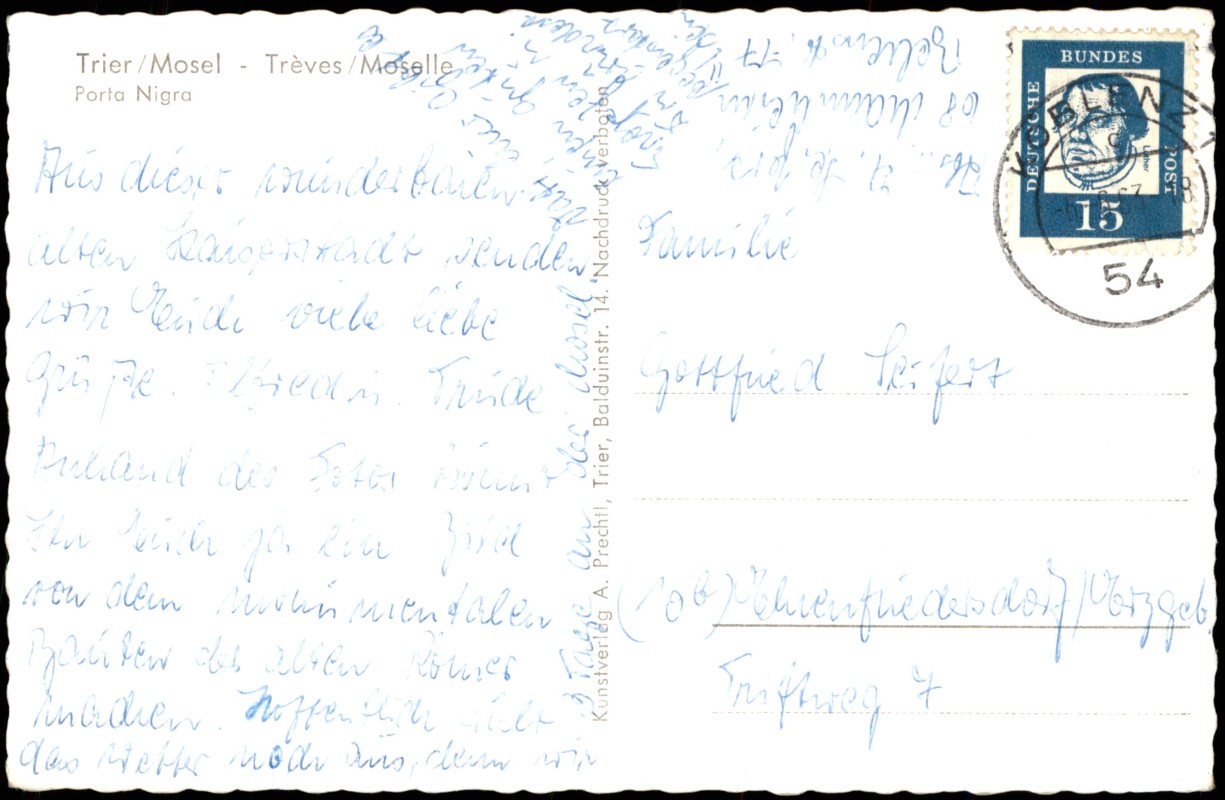 Trier/Mosel - Trèves/Moselle
Porta Nigra
Aus dieser wunderbaren
alten Kaiserstadt senden
wir Euch viele liebe
Grüße. Trude
Anhand des Fotos könnt
Ihr Euch ja ein Bild
von dem monumentalen
Bauten der alten Römer
machen. Hoffentlich hält
das Wetter noch aus, denn wir
3 Tage an der Mosel
Kunstverlag A. Prechtl, Trier, Balduinstr. 14. Nachdruck verboten
68 Mannheim
DEUTSCHE BUNDESPOST
Luther
15
KOBLENZ
54
Familie
Gottfried Seifert
(10b) Ehrenfriedersdorf/Erzgeb.
Triftweg 7